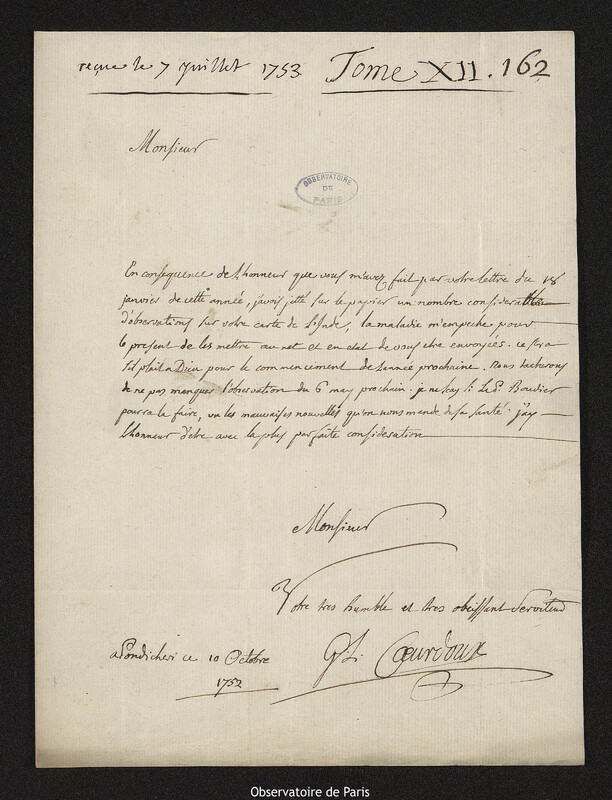 reçue le 7 Juillet 1753 Tome XII. 162
Monsieur
OBSERVATOIRE
DE
PARIS
En consequence de l'honneur que vous m'avez fait par votre lettre du 18
janvier de cette année, j'avois jetté sur le papier un nombre considerable
d'observations sur votre carte de l'Inde, la maladie m'empeche pour
le present de les mettre au net et en etat de vous etre envoyées. ce sera
s'il plait a Dieu pour le commencement de l'année prochaine. Nous tacherons
de ne pas manquer l'observation du 6 may prochain. je ne scay si le P. Boudier
pourra le faire, vu les mauvaises nouvelles qu'on nous mande de sa santé. j'ay
l'honneur d'etre avec la plus parfaite consideration
Monsieur
Votre tres humble et tres obeissant Serviteur
a Pondicheri ce 10 Octobre
1752
Cœurdoux
Observatoire de Paris